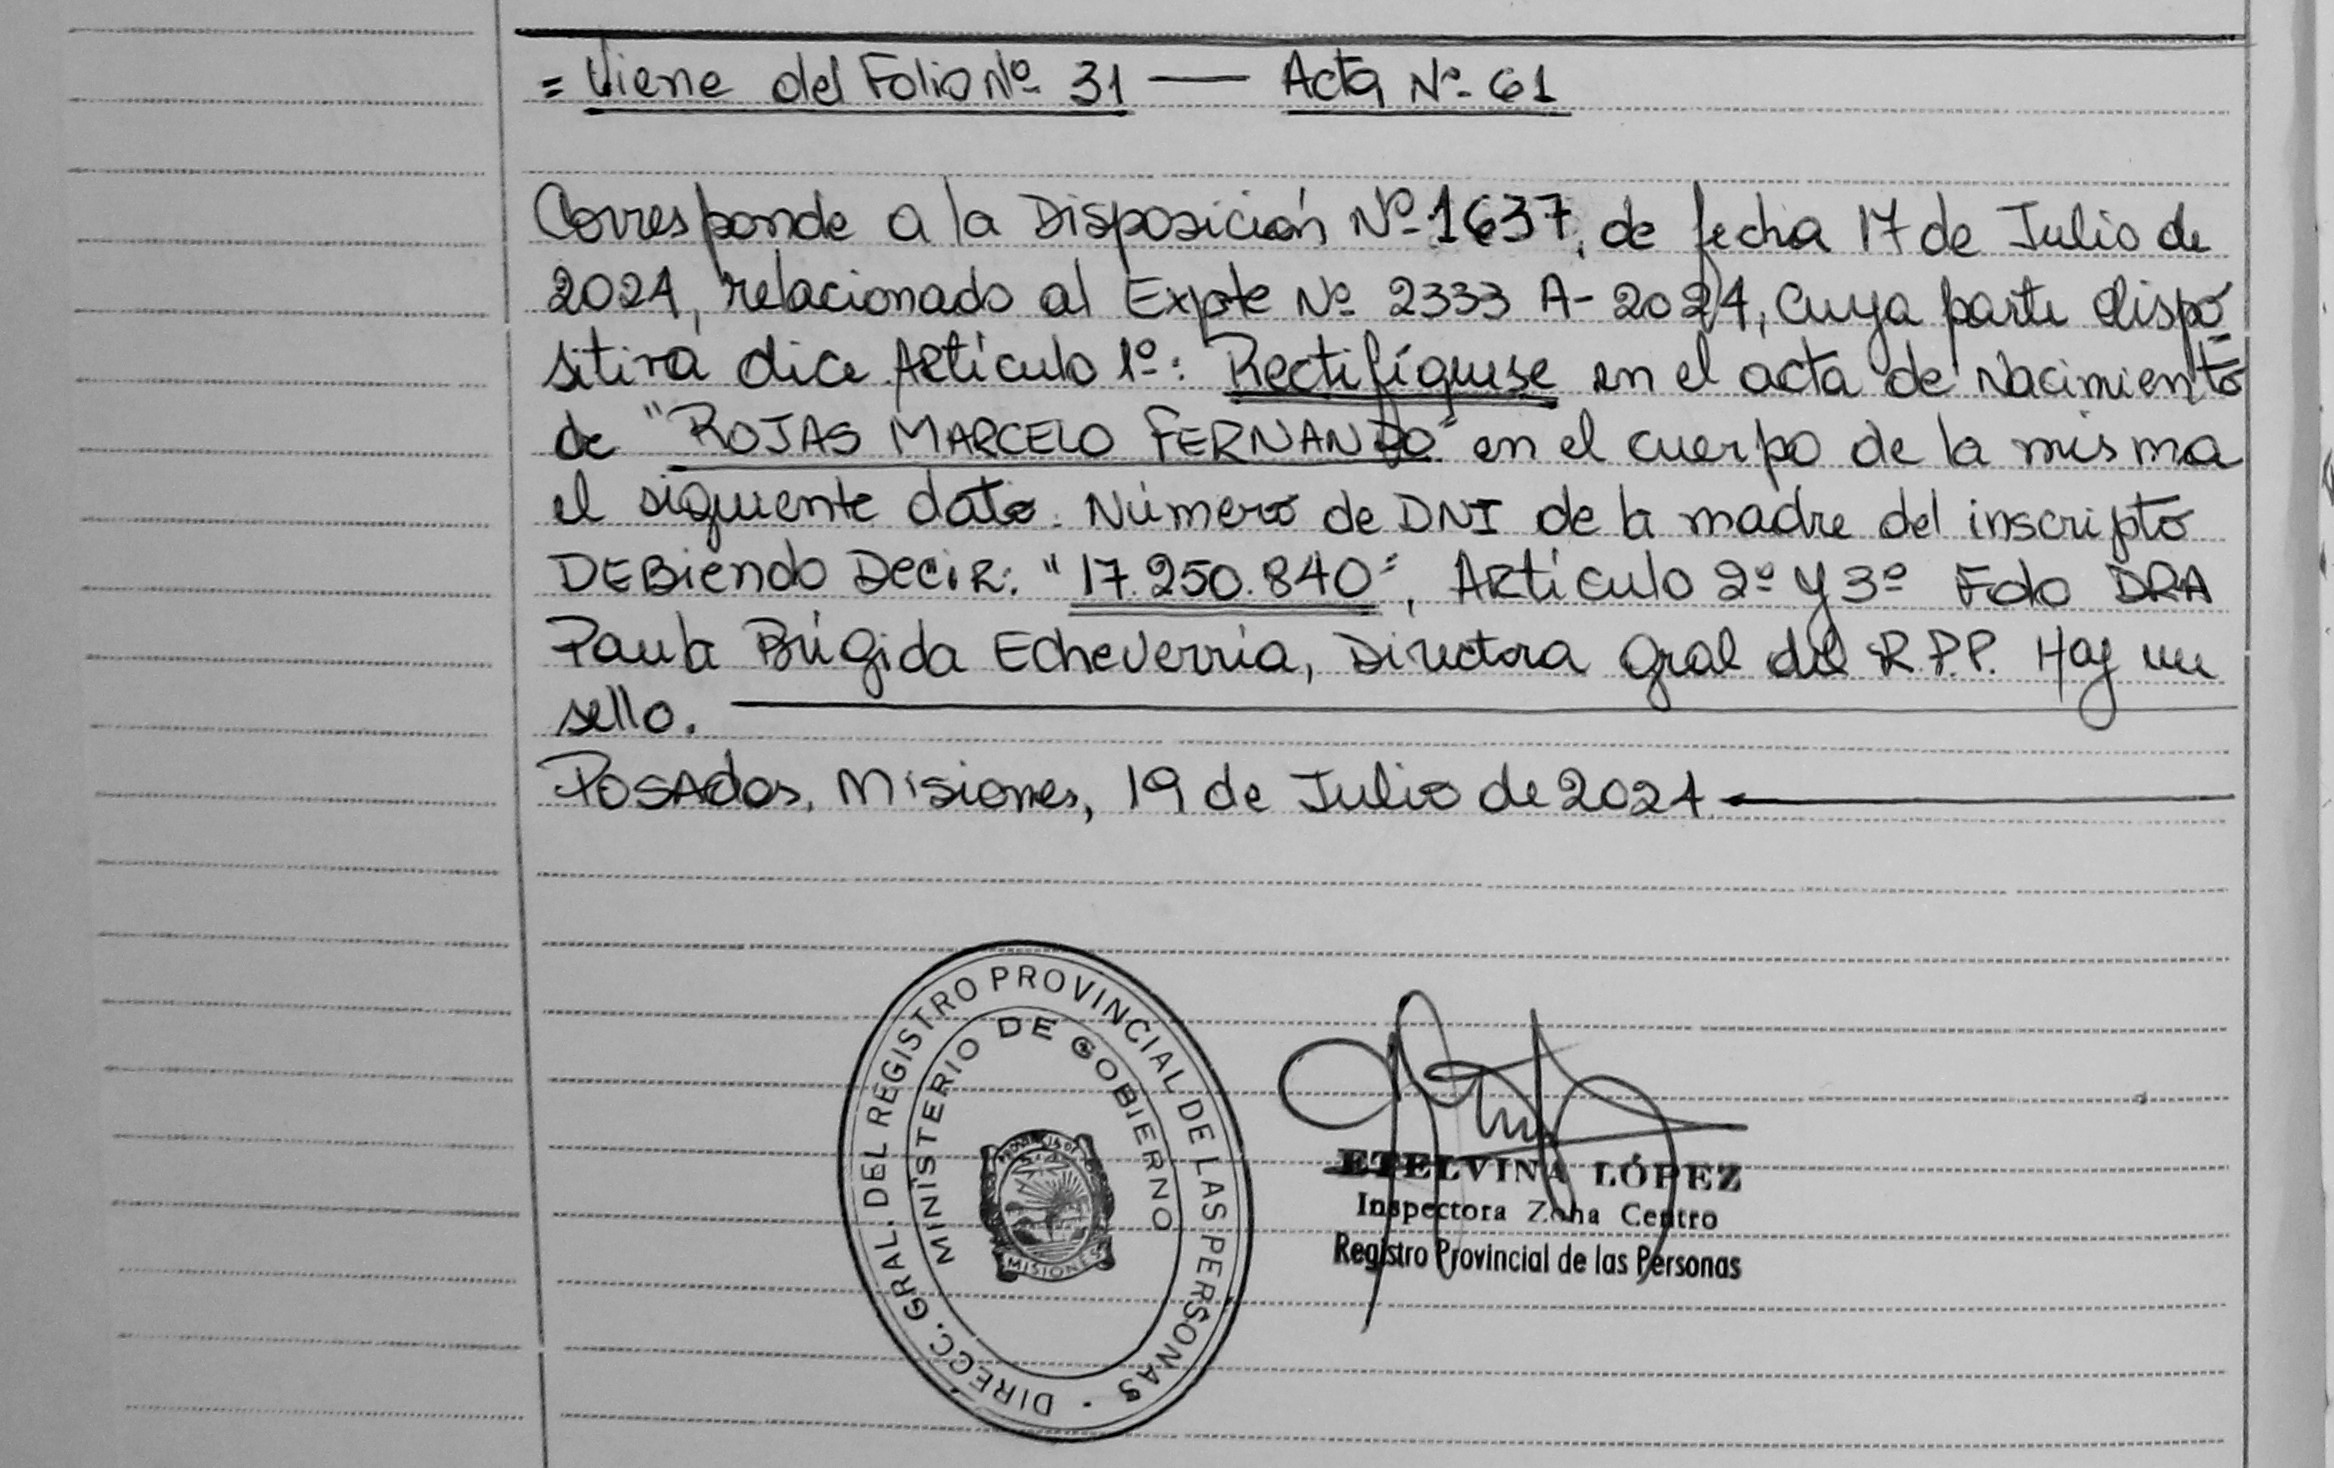 = Viene del Folio Nº 31 — Acta Nº 61
Corresponde a la Disposición Nº 1637, de fecha 17 de Julio de
2024, relacionado al Expte Nº 2333 A-2024, cuya parte dispo
sitiva dice Artículo 1º: Rectifíquese en el acta de Nacimiento
de "ROJAS MARCELO FERNANDO" en el cuerpo de la misma
el siguiente dato. Número de DNI de la madre del inscripto
DEBiendo Decir: "17.250.840", Artículo 2º y 3º Fdo DRA
Paula Brígida Echeverría, Directora Gral del R.P.P. Hay un
sello.
Posadas, Misiones, 19 de Julio de 2024
DIRECC. GRAL. DEL REGISTRO PROVINCIAL DE LAS PERSONAS
MINISTERIO DE GOBIERNO
MISIONES
ETELVINA LÓPEZ
Inspectora Zona Centro
Registro Provincial de las Personas